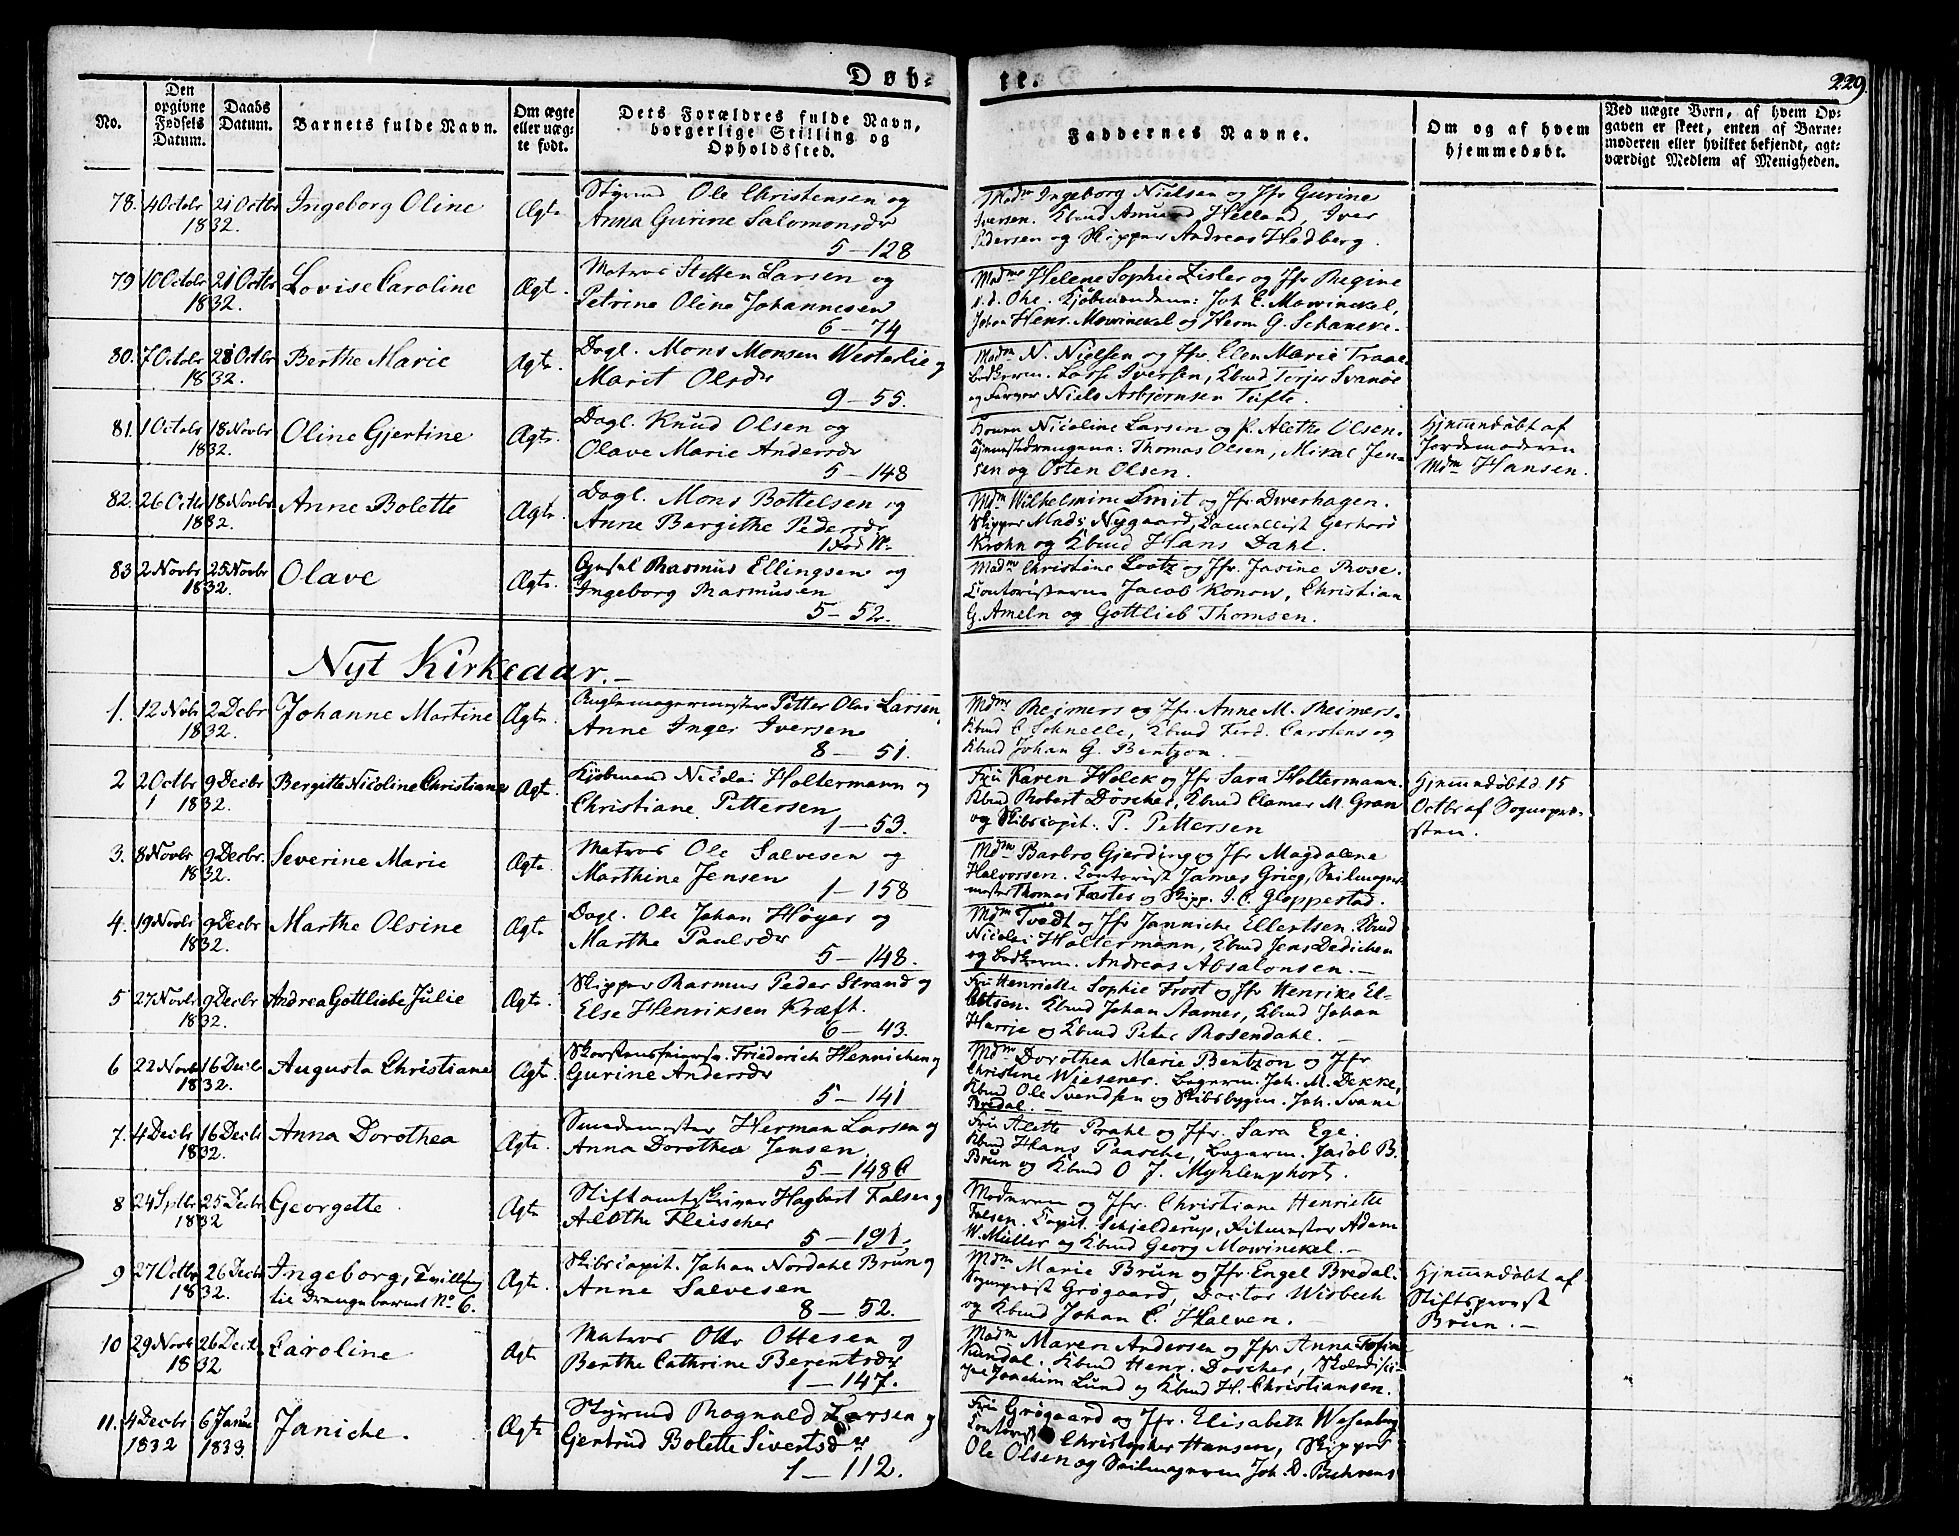 Døb-
te.
229.
No.
Den opgivne Fødsels Datum.
Daabs Datum.
Barnets fulde Navn.
Om ægte eller uægte født.
Dets Forældres fulde Navn, borgerlige Stilling og Opholdssted.
Faddernes Navne.
Om og af hvem hjemmedøbt.
Ved uægte Børn, af hvem Opgaven er skeet, enten af Barnemoderen eller hvilket bekjendt, agtværdigt Medlem af Menigheden.
78. 4 Octobr 21 Octbr Ingeborg Oline Ægte Styrmd Ole Christensen og
1832. Anna Gurine Salomonsdr
5 — 128
Madm Ingeborg Nielsen og Jfr Gurine
Iversen. Kbmd Amund Helland, Iver
Pedersen og Skipper Andreas Hedberg.
79 10 Octobr 21 Octbr Lovise Caroline Ægt. Matros Steffen Larsen og
1832. Petrine Oline Johannesen
6 — 74
Madme Helene Sophie Zisler og Jfr Regine
v. d. Ohe. Kjøbmændene: Joh E. Mowinckel,
Johan Henr. Mowinckel og Herm G. Schancke.
80. 7 Octobr 28 Octbr Berthe Marie Ægte. Dagl. Mons Monsen Westerlie og
1832. Marit Olsdr
9 — 55.
Madm N. Nielsen og Jfr. Elen Marie Traae
Lasse Iversen, Kbmd Terjer Svanøe
og Farver Niels Asbjørnsen Tufte.
81. 1 Octobr 18 Novbr Oline Gjertine Ægte. Dagl. Knud Olsen og
1832. Olave Marie Andersdr
5 — 148
Konen Nicoline Larsen og P. Alethe Olsen.
Tjenestedrengene: Thomas Olsen, Mikal Jen-
sen og Osten Olsen.
Hjemmedøbt af
Jordemoderen
Mdm Hansen.
82. 26 Octbr 18 Novbr Anne Bolette Ægte. Dagl. Mons Bottelsen og
1832. Anne Bergithe Pedersdr
Mdm Wilhelmine Smit og Jfr Dverhagen.
Skipper Mads Nygaard, Gerhard
Krohn og Kbmd Hans Dahl.
83 2 Novbr 25 Novbr Olave Ægte. Rasmus Ellingsen og
1832. Ingeborg Rasmusen
5 — 52.
Madm Christine Lootz og Jfr. Jasine Rose.
Contoristerne Jacob Konow, Christian
G. Ameln og Gottlieb Thomsen.
Nyt Kirkeaar.
1. 12 Novbr 2 Decbr Johanne Martine Ægte. Petter Olai Larsen
1832. Anne Inger Iversen
8 — 51.
Mdme Reimers og Jfr. Anne M. Reimers.
Kbmd C Schnelle, Kbmd Ferd. Carstens og
Kbmd Johan G. Bentzon.
2 2 Octbr 9 Decbr Bergitte Nicoline Christiane Ægte. Kjøbmand Nicolai Holtermann og
1 1832. Christiane Pettersen
1 — 53.
Fru Karen Holck og Jfr Sara Holtermann.
Kbmd Robert Döscher, Kbmd Clamer M. Gran
og Skibscapit. P. Pettersen
Hjemmedøbt d. 15
Octbr af Sognepre-
sten.
3. 8 Novbr 9 Decbr. Severine Marie Ægte. Matros Ole Salvesen og
1832. Marthine Jensen
1 — 158
Mdm Barbro Gjerding og Jfr Magdalene
Halvorsen. Contorist James Grieg, Seilmager-
mester Thomas Fæster og Skipp. I. C. Gloppestad.
4. 19 Novbr 9 Decbr Marthe Olsine Ægte Dagl. Ole Johan Höyer og
1832. Marthe Paulsdr
5 — 148.
Mdm Tvedt og Jfr Janniche Ellertsen. Kbmd
Nicolai Holtermann, Kbmd Jens Dedichen
og Andreas Absalonsen.
5 27 Novbr 9 Decbr Andrea Gottliebe Julie Ægte. Skipper Rasmus Peder Strand og
1832. Else Henriksen Kræft.
6 — 43.
Fru Henriette Sophie Frost og Jfr Henrike El-
lertsen. Kbmd Johan Stamer, Kbmd Johan
Harrje og Kbmd Peter Rosendahl.
6 22 Novbr 16 Decbr Augusta Christiane Ægte. Skorstensfeiersv. Friederich Hennichen og
1832. Gurine Andersdr
5 — 141
Mdm Dorothea Marie Bentzon og Jfr
Christine Wiesener. Bagerm. Joh. M. Dekke,
Kbmd Ole Svendsen og Skibsbygm. Joh. Svane
Bredal.
7. 4 Decbr 16 Decbr Anna Dorothea Ægte. Smedemester Herman Larsen og
1832. Anna Dorothea Jensen
5 — 148 C
Fru Alette Prahl og Jfr. Sara Ege.
Kbmd Hans Paasche, Bagerm. Jacob B.
Brun og Kbmd O J. Myhlenphort.
8 24 Sptbr 25 Decbr Georgette. Ægte Stiftamtskriver Hagbart Falsen og
1832 Alethe Fleischer
5 — 191.
Moderen og Jfr. Christiane Henriette
Falsen. Capit. Schjelderup, Ritmester Adam
W. Müller og Kbmd Georg Mowinckel.
9 27 Octbr 26 Decbr Ingeborg, Tvilling Ægte. Skibscapit. Johan Nordahl Brun og
1832. til Drengebarnet No 6. Anne Salvesen
8 — 52.
Mdm Marie Brun og Jfr. Engel Bredal.
Sogneprest Grøgaard, Doctor Wisbech
og Kbmd Johan C. Halven.
Hjemmedøbt af
Stiftsprovst
Brun.
10 29 Novbr 26 Decbr Caroline Ægte Matros Otto Ottesen og
1832 Berthe Cathrine Berentsdr
1 — 147.
Madm Maren Andersen og Jfr Anna Tofine
Kandal. Kbmd Henr. Doscher,
Joachim Lund og Kbmd H. Christiansen.
11. 4 Decbr 6 Janu Janiche. Ægte Styrmd Rognald Larsen og
1832 1833. Gertrud Bolette Sivertsdr
1 — 112.
Fru Grøgaard og Jfr. Elisabeth Wesenberg
Contorist Christopher Hansen, Skipper
Ole Olsen og Seilmagerm Joh. D. Behrens